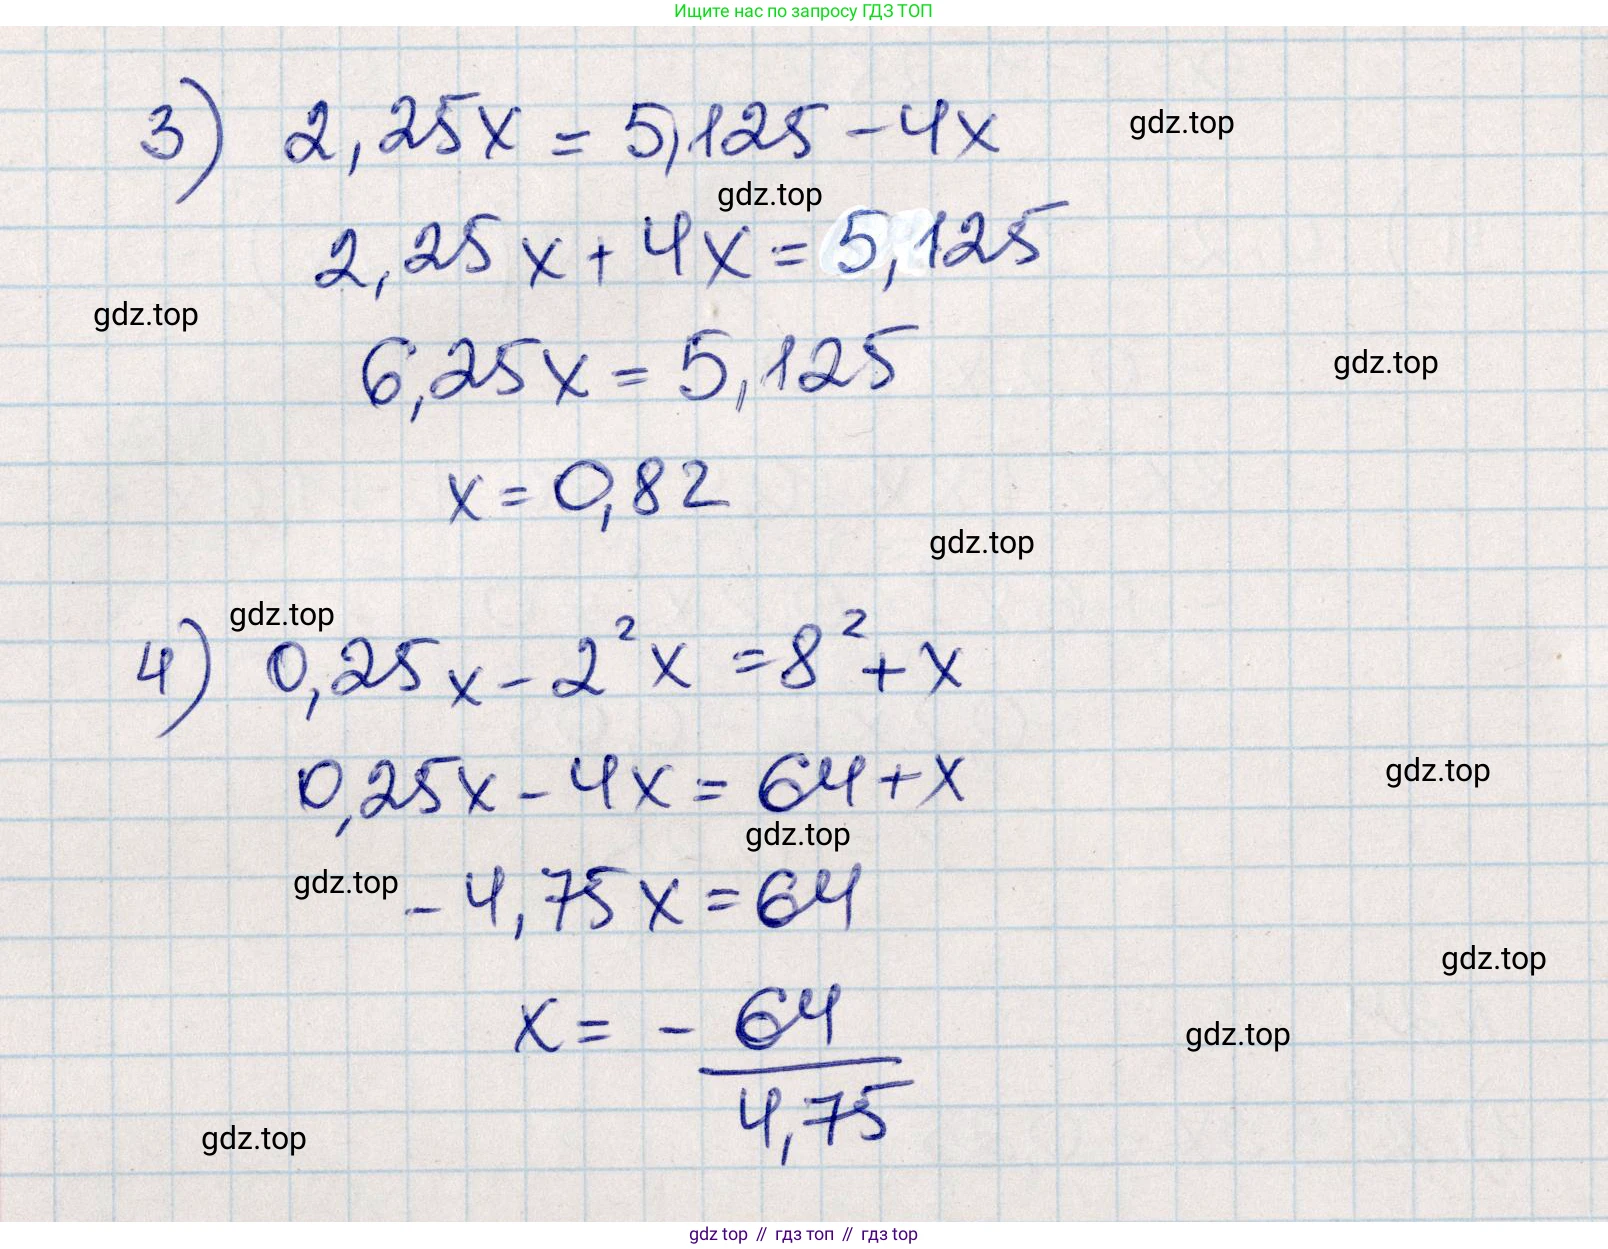 Ищите нас по запросу ГДЗ ТОП
3) 2,25x = 5,125 - 4x
gdz.top
gdz.top
2,25x + 4x = 5,125
gdz.top
6,25x = 5,125
gdz.top
x = 0,82
gdz.top
gdz.top
4) 0,25x - 2²x = 8² + x
0,25x - 4x = 64 + x
gdz.top
gdz.top
gdz.top
- 4,75x = 64
gdz.top
x = - 64
gdz.top
4,75
gdz.top
gdz top // гдз топ // гдз top